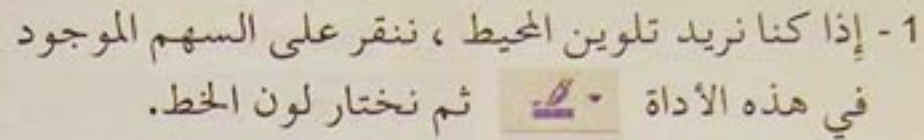 1 - إِذا كنا نريد تلوين المحيط ، ننقر على السهم الموجود
في هذه الأداة ثم نختار لون الخط.